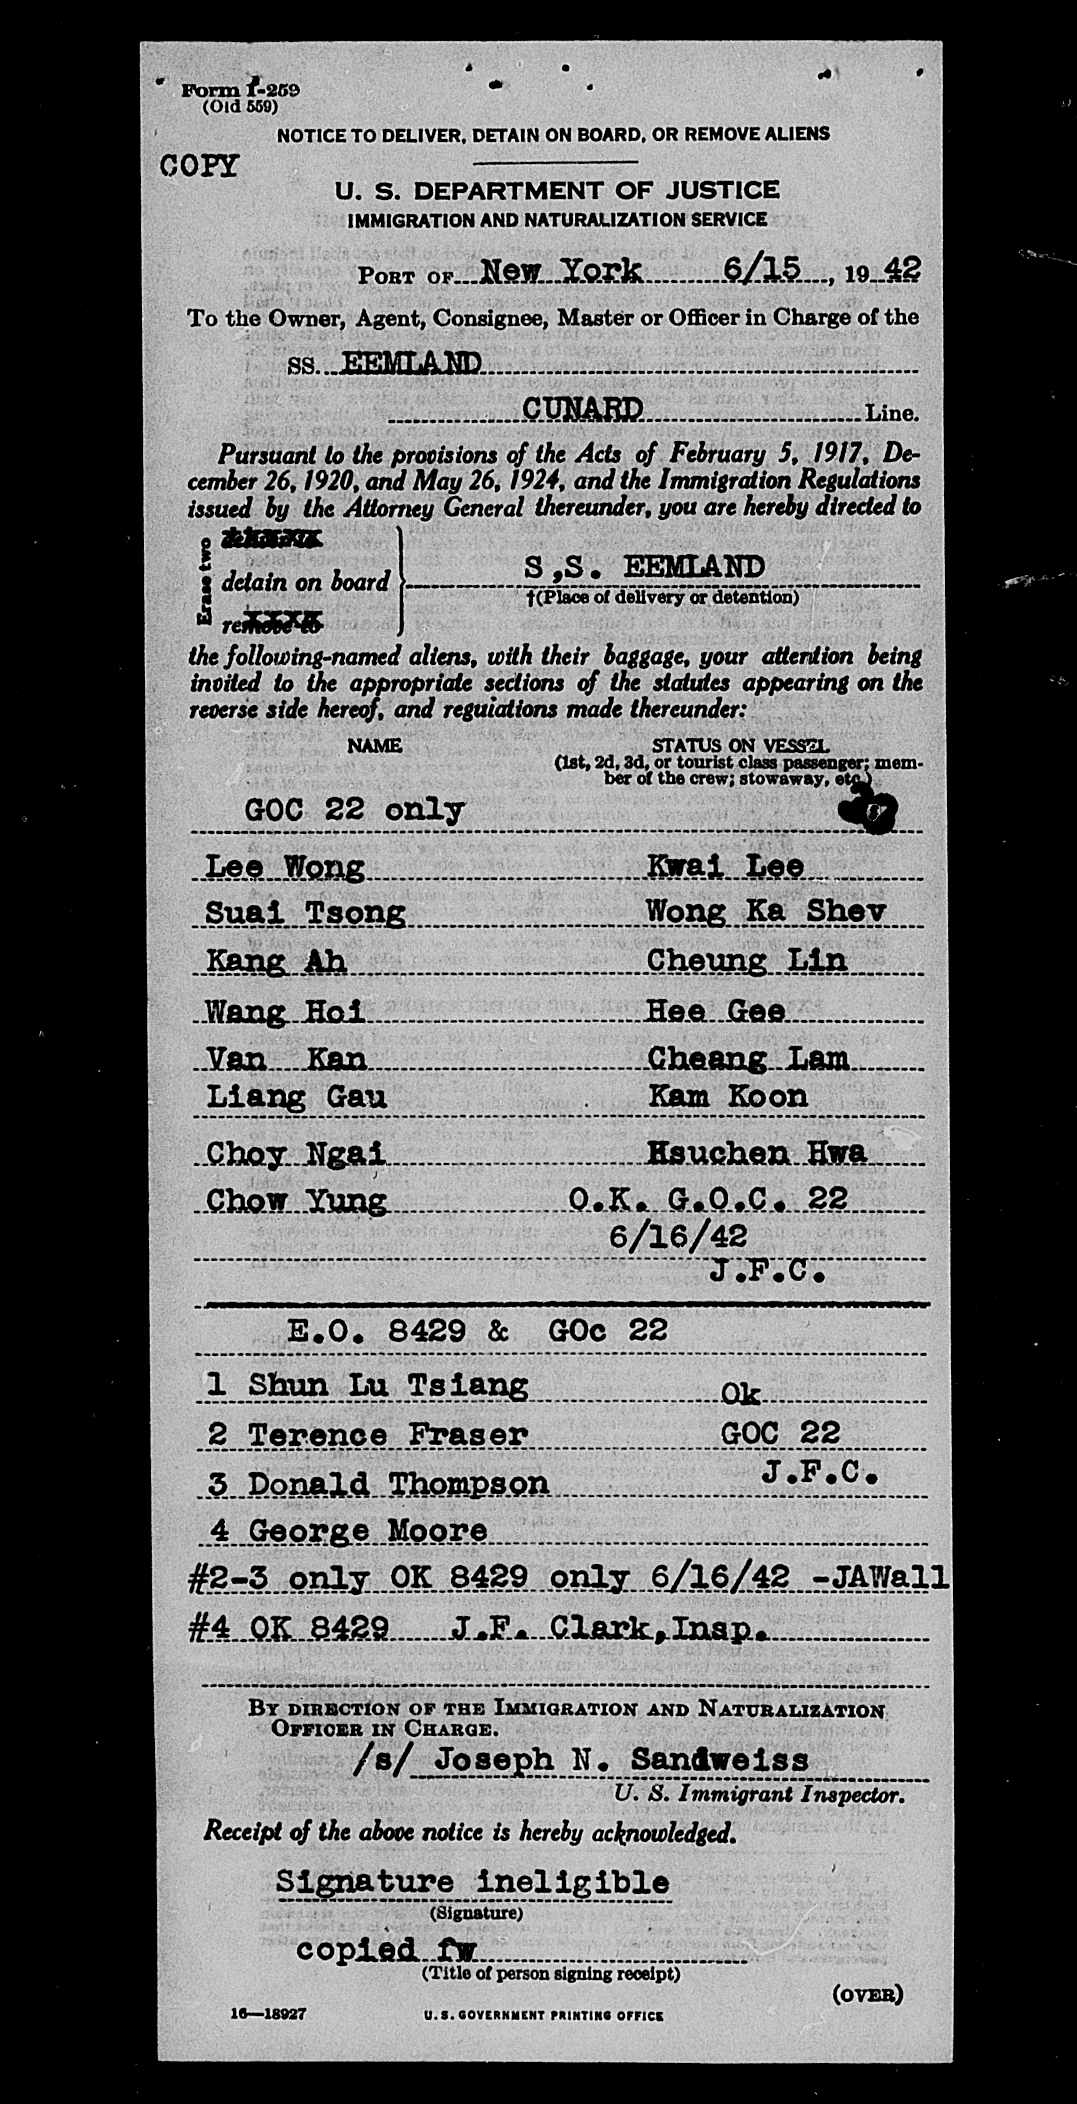 Form I-259
(Old 559)
NOTICE TO DELIVER, DETAIN ON BOARD, OR REMOVE ALIENS
COPY
U. S. DEPARTMENT OF JUSTICE
IMMIGRATION AND NATURALIZATION SERVICE
PORT OF New York 6/15, 19 42
To the Owner, Agent, Consignee, Master or Officer in Charge of the
SS. EEMLAND
CUNARD Line.
Pursuant to the provisions of the Acts of February 5, 1917, De-
cember 26, 1920, and May 26, 1924, and the Immigration Regulations
issued by the Attorney General thereunder, you are hereby directed to
Erase two
detain on board S,S. EEMLAND
†(Place of delivery or detention)
remove to
the following-named aliens, with their baggage, your attention being
invited to the appropriate sections of the statutes appearing on the
reverse side hereof, and regulations made thereunder:
NAME STATUS ON VESSEL
(1st, 2d, 3d, or tourist class passenger; mem-
ber of the crew; stowaway, etc.)
GOC 22 only
Lee Wong Kwai Lee
Suai Tsong Wong Ka Shev
Kang Ah Cheung Lin
Wang Hoi Hee Gee
Van Kan Cheang Lam
Liang Gau Kam Koon
Choy Ngai Hsuchen Hwa
Chow Yung O.K. G.O.C. 22
6/16/42
J.F.C.
E.O. 8429 & GOc 22
1 Shun Lu Tsiang Ok
2 Terence Fraser GOC 22
3 Donald Thompson J.F.C.
4 George Moore
#2-3 only OK 8429 only 6/16/42 -JAWall
#4 OK 8429 J.F. Clark, Insp.
BY DIRECTION OF THE IMMIGRATION AND NATURALIZATION
OFFICER IN CHARGE.
/s/ Joseph N. Sandweiss
U. S. Immigrant Inspector.
Receipt of the above notice is hereby acknowledged.
Signature ineligible
(Signature)
copied fw
(Title of person signing receipt)
(OVER)
16—18927 U.S. GOVERNMENT PRINTING OFFICE